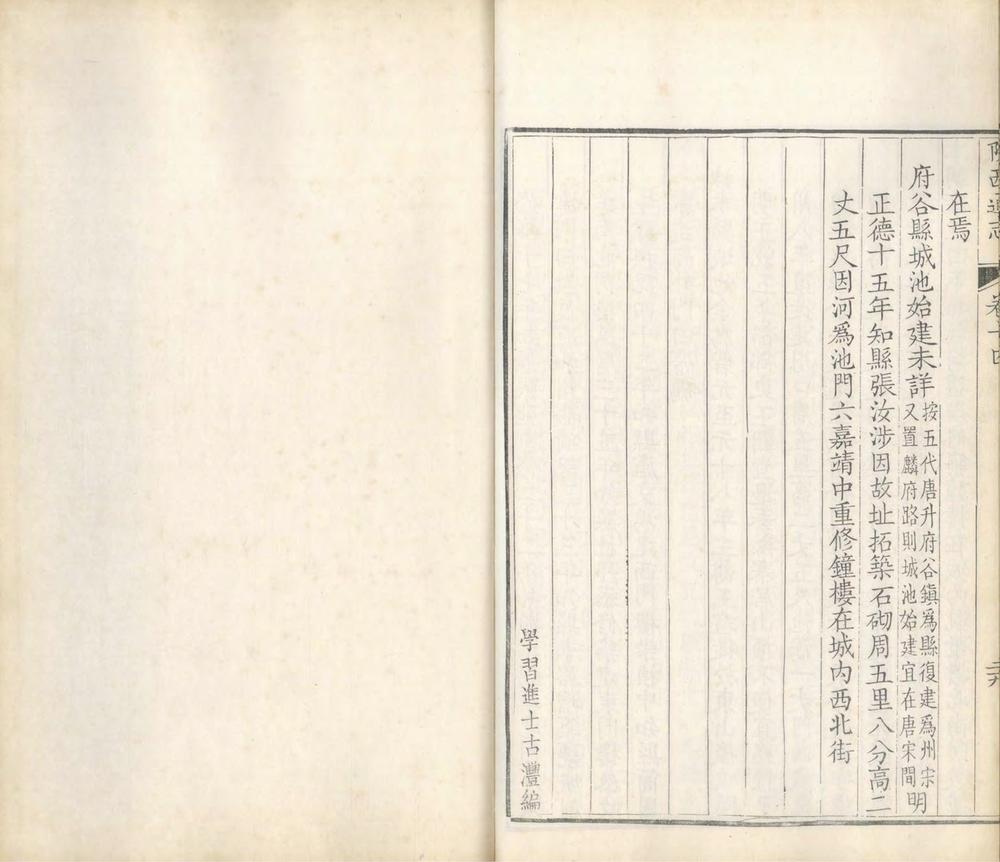 陝西通志 卷十四
在焉
府谷縣城池始建未詳按五代唐升府谷鎮爲縣復建爲州宋又置麟府路則城池始建宜在唐宋間明
正德十五年知縣張汝涉因故址拓築石砌周五里八分高二
丈五尺因河爲池門六嘉靖中重修鐘樓在城内西北街
學習進士古灃編